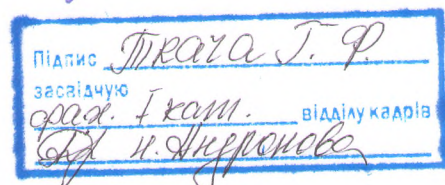 Підпис Ткача Г. Ф.
засвідчую
фах. І кат. відділу кадрів
Н. Андронова